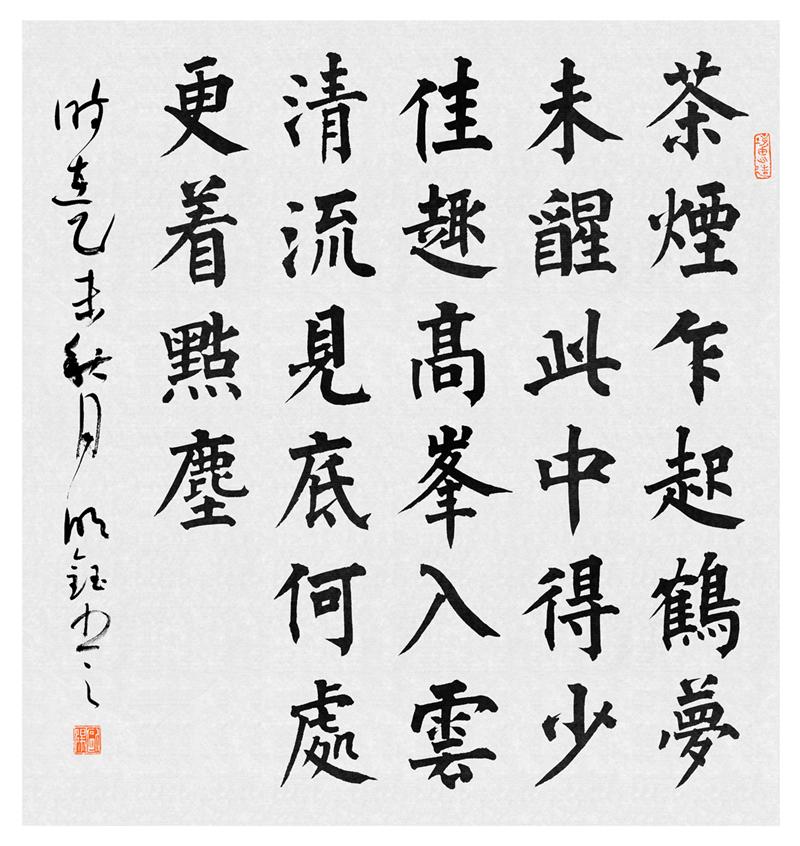 茶煙乍起鶴夢
未醒此中得少
佳趣高峯入雲
清流見底何處
更着點塵
時乙未秋月明鈺书之